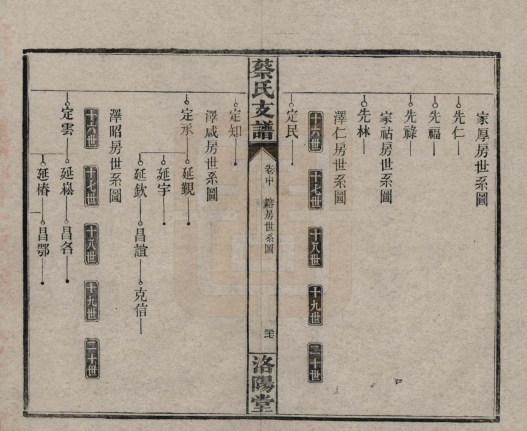 家厚房世系圖
先仁
先福
先祿
家祜房世系圖
先林
澤仁房世系圖
十六世 十七世 十八世 十九世 二十世
定民
蔡氏支譜
卷中
房世系圖
洛陽堂
定知
澤咸房世系圖
定承 延觀
延宇
延欽 昌誼 克信
澤昭房世系圖
十六世 十七世 十八世 十九世 二十世
定雲 延崧 昌名
延椿 昌鄂